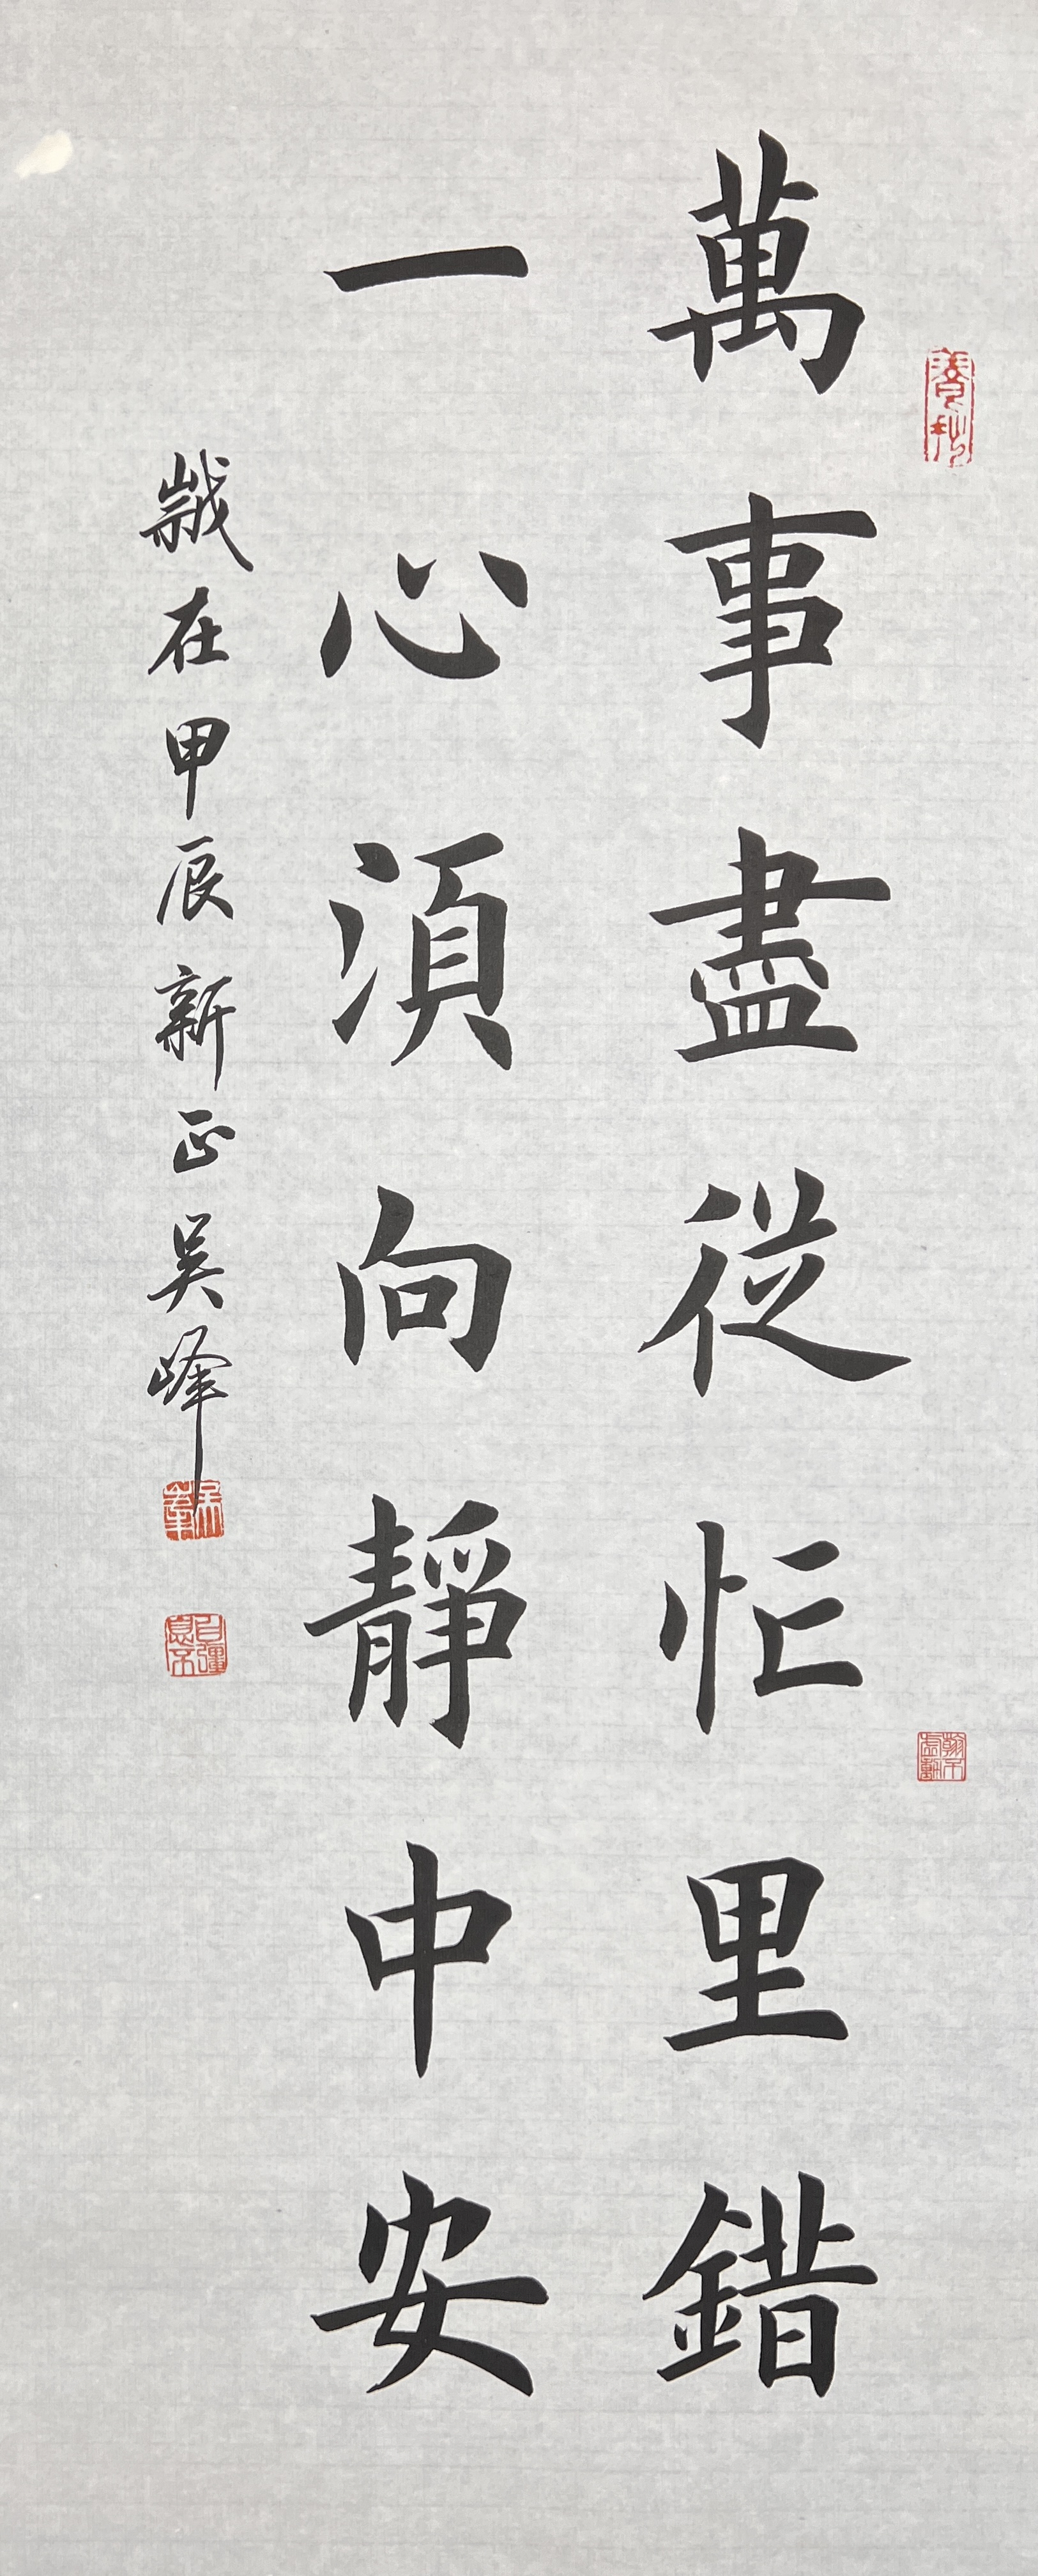 萬事盡從忙里錯
一心須向靜中安
歲在甲辰新正吳峰
自彊不息